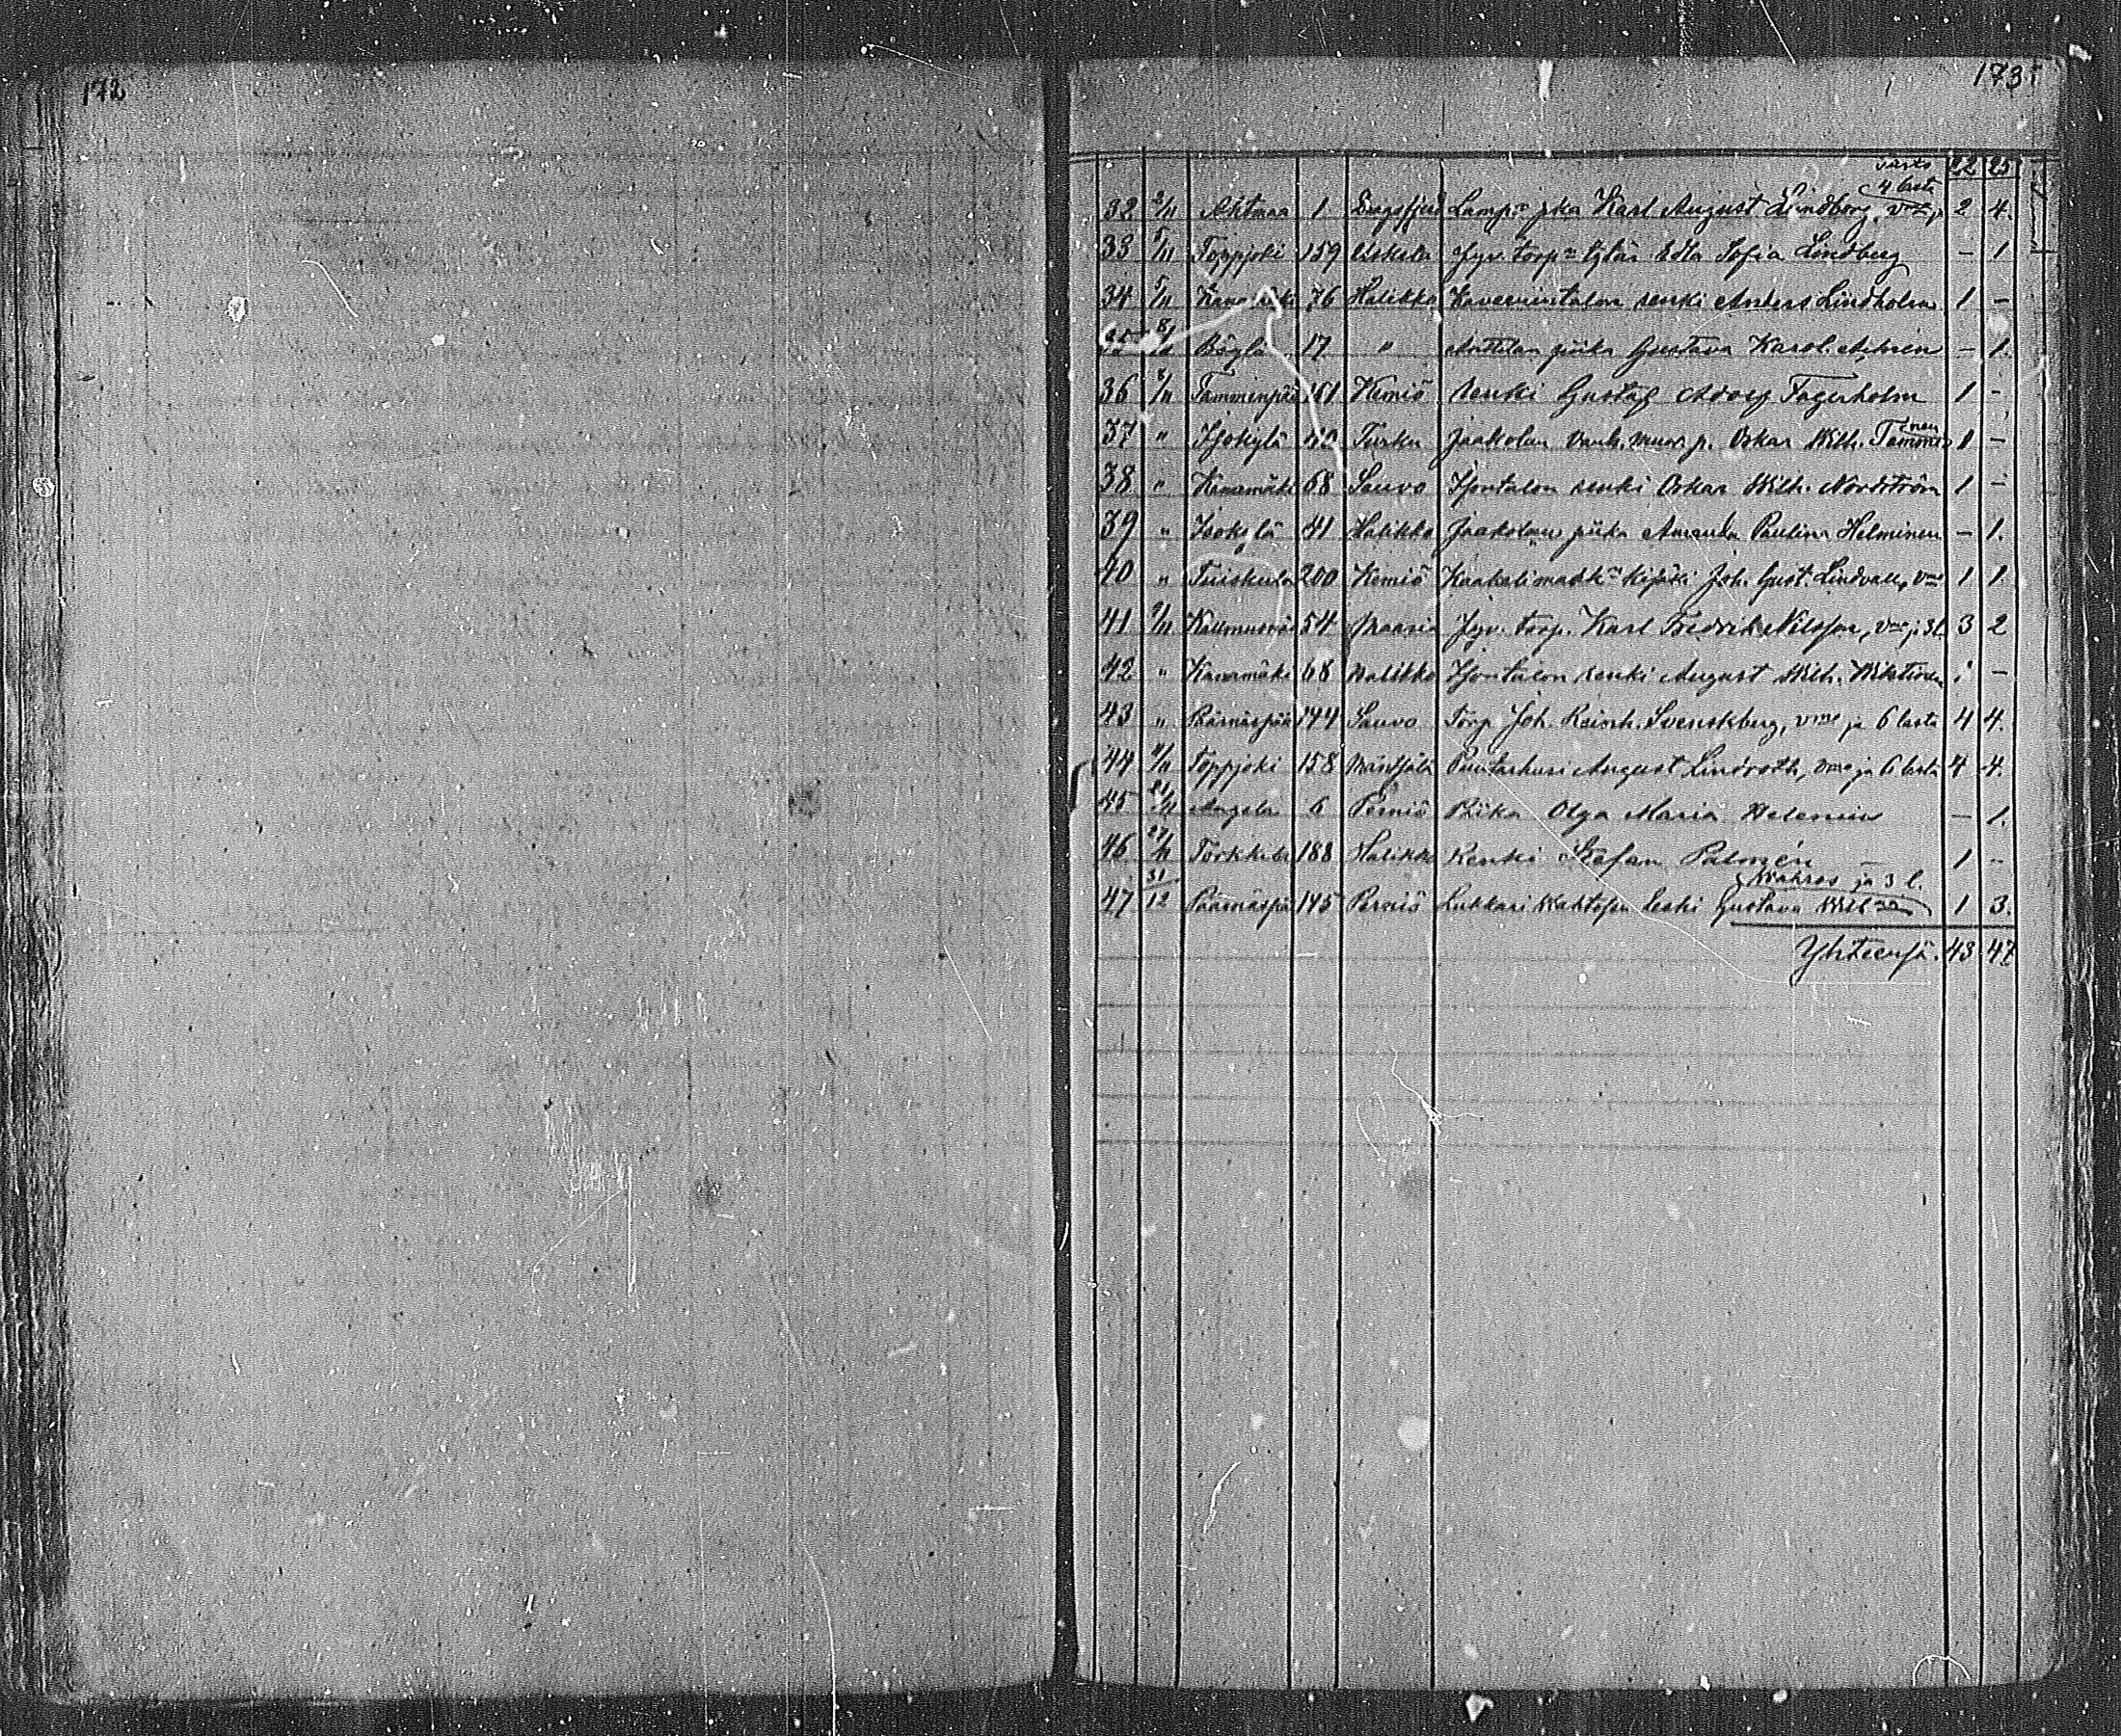 172
173
siirto 22 25
32 2/11 Ahtmaa 1 Dragsfjerd Lamp. pka Karl August Lindborg, vmo ja 4 lasta 2 4.
33 5/11 Toppjoki 159 Uskela Jyv. torp:n tytär Edla Sofia Lindberg – 1
34 5/11 76 Halikko renki Anders Lindholm 1 –
35 8/11 Bögla 17 " Anttilan piika Gustava Karol. – 1.
36 8/11 Tammenpää 161 Kemiö Renki Gustaf Adolf Fagerholm 1 –
37 " Isokylä Turku Jaakolan p. Oskar Wilh. Tamminen 1 –
38 " Kanamäki 68 Sauvo Isontalon renki Oskar Wilh. Nordström 1 –
39 " Isokylä 41 Halikko Jaakolan piika Amanda Paulina Helminen – 1.
40 " Tuiskula 200 Kemiö Joh. Gust. Lindvall, vmo 1 1.
41 9/11 54 Maaria Jyv. torp. Karl Fredrik Nilsson, vmo ja 3 l. 3 2
42 " Kanamäki 68 Halikko Isontalon renki August Wilh. 1 –
43 " Päärnäspää 144 Sauvo Torp. Joh. Reinh. Svenskberg, vmo ja 6 lasta 4 4.
44 11/11 Toppjoki 158 August Lindroth, vmo ja 6 lasta 4 4.
45 21/11 Angela 6 Perniö Piika Olga Maria Helenius – 1.
46 27/11 Torkkila 188 Halikko Renki Stefan Palmén 1 –
47 31/12 Päärnäspää 145 Perniö Lukkari leski Gustava Wahros ja 3 l. 1 3.
Yhteensä. 43 47